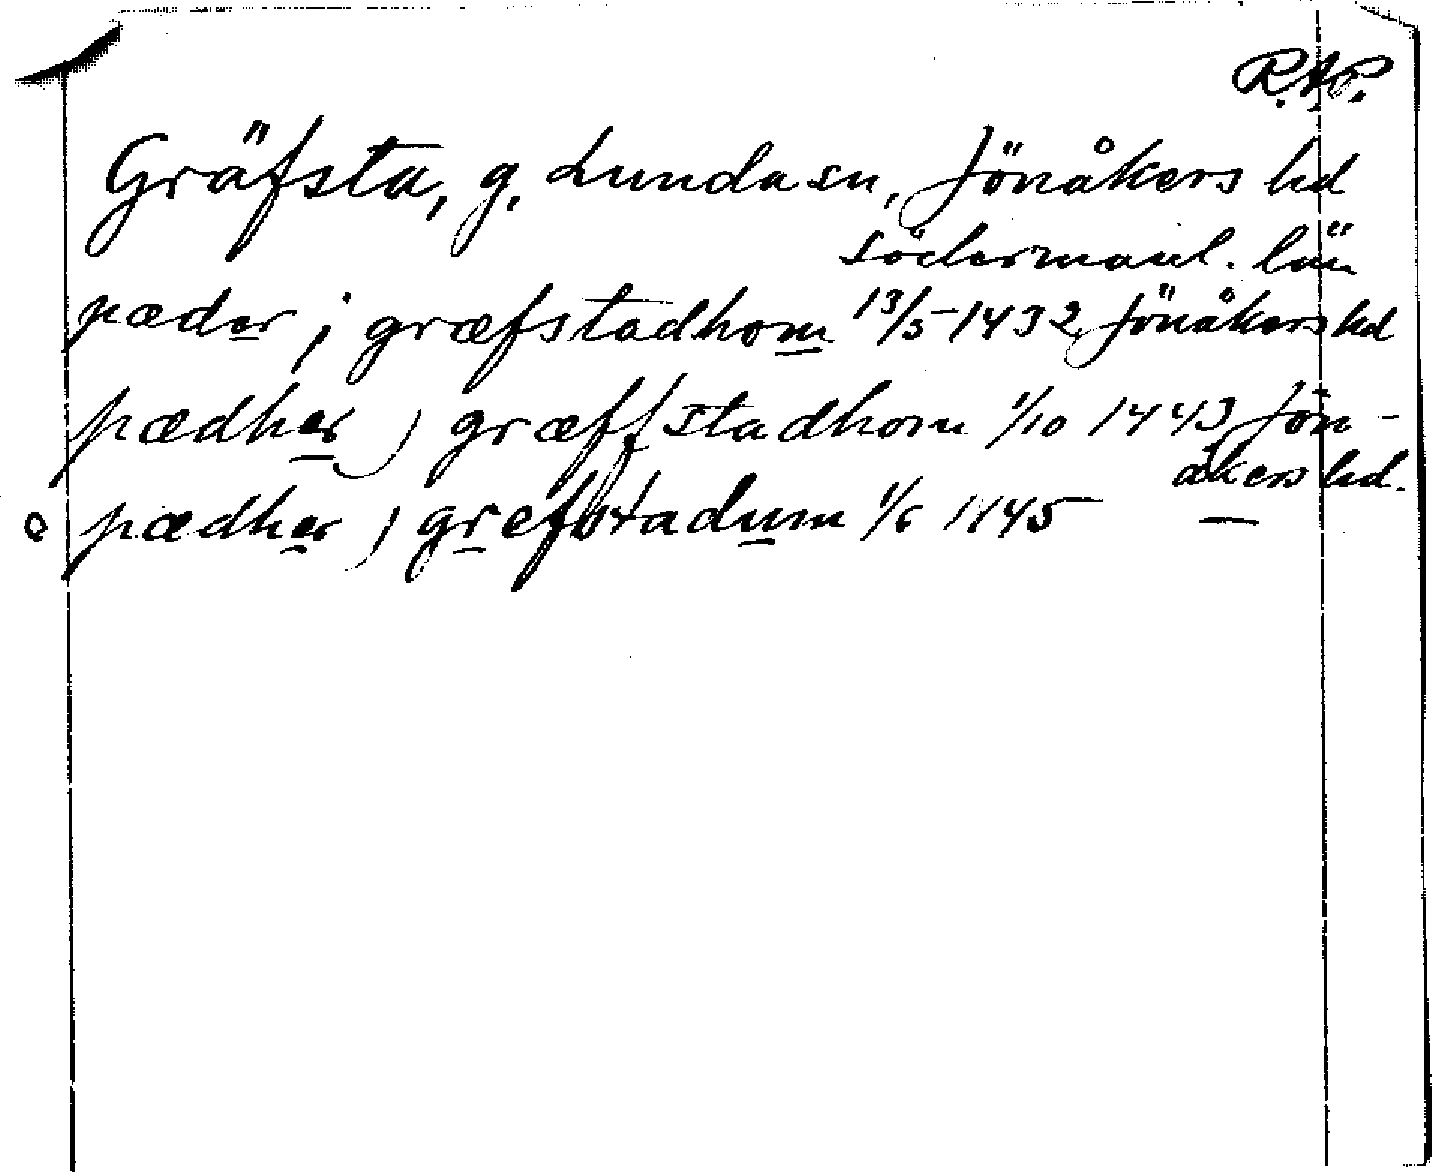 R.A.P.
Gräfsta, g. Lunda sn, Jönåkers hd
Södermanl. län
pæder i græfstadhom 13/5 1432 Jönåkers hd
pædher j græffstadhom 1/10 1443 Jön-
åkers hd.
pædher j grefstadum 1/6 1445 —